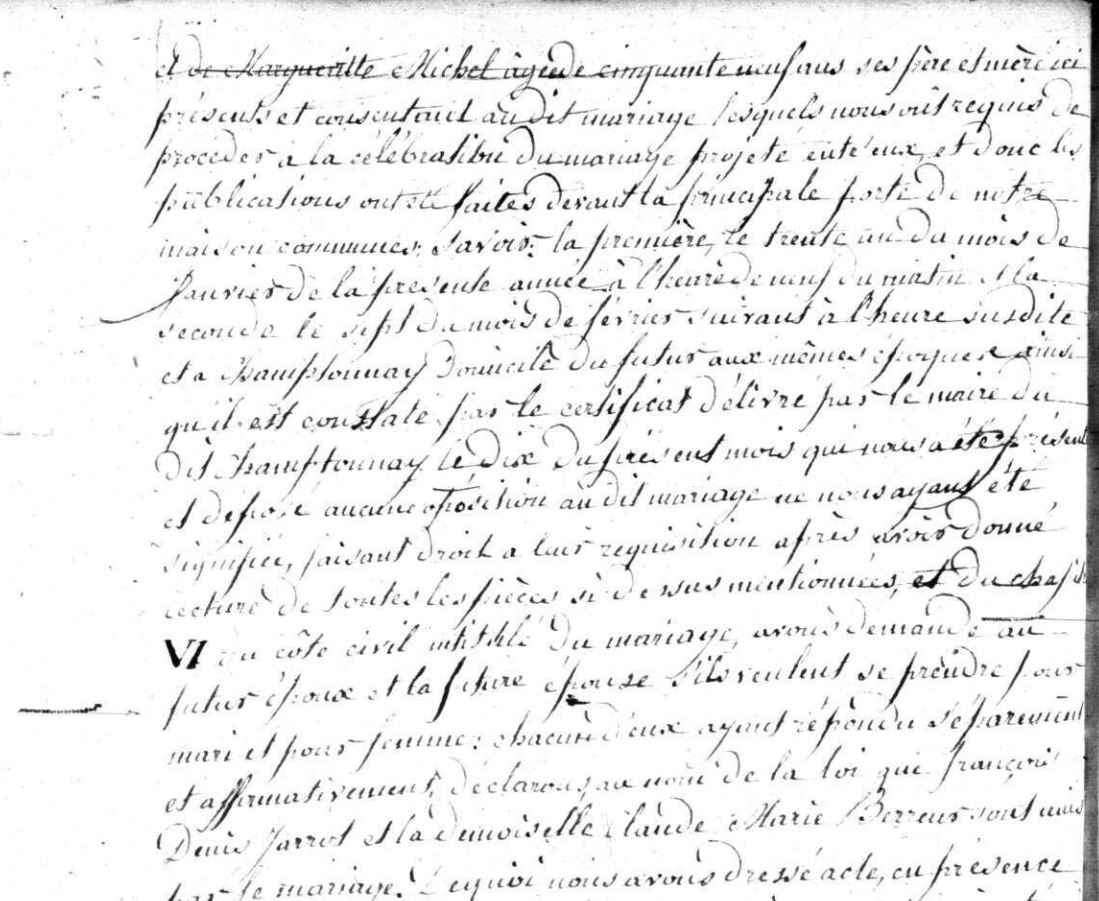 et de Margueritte Michel agée de cinquante neuf ans ses père et mère ici
présents et consentant au dit mariage lesquels nous ont requis de
procéder à la célébration du mariage projeté entr'eux, et donc les
publications ont été faites devant la principale porte de notre
maison commune; savoir: la première, le trente un du mois de
Janvier de la présente année à l'heure de neuf du matin et la
seconde le sept du mois de février suivant à l'heure susdite
et a Champtonnay domicile du futur aux mêmes époques ainsi
qu'il est constaté par le certificat délivré par le maire du
dit Champtonnay le dix du présent mois qui nous a été présenté
et déposé aucune oposition au dit mariage ne nous ayant été
signifiée, faisant droit a leur requisition après avoir donné
lecture de toutes les pièces si dessus mentionnées, et du chapitre
VI du côte civil intitulé du mariage, avons demandé au
futur époux et la future épouse s'ils veulent se prendre pour
mari et pour femme: chacun d'eux ayant répondu séparement
et affirmativement, déclarons au nom de la loi que françois
Denis Jarrot et la demoiselle Claude Marie Berreur sont unis
par le mariage. De quoi nous avons dressé acte, en présence